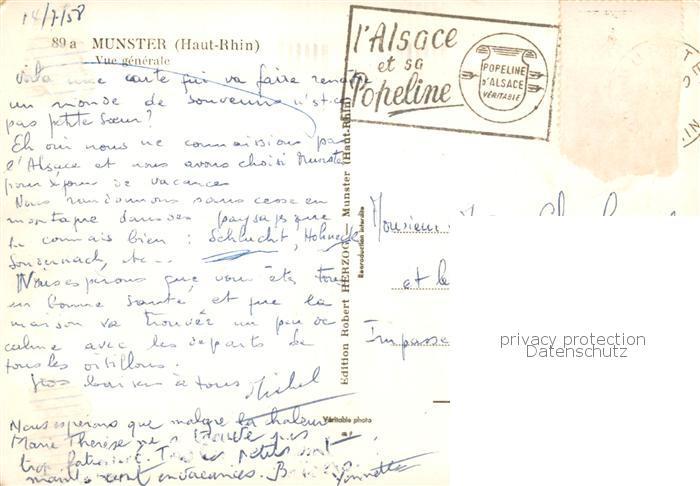 14/7/58
89 a - MUNSTER (Haut-Rhin)
Vue générale
voilà une carte qui va faire renaître
un monde de souvenirs n'est-ce
pas petite sœur?
Eh oui nous ne connaissions pas
l'Alsace et nous avons choisi Munster
pour séjour de vacances
Nous randonnons sans cesse en
montagne dans des paysages que
tu connais bien : Schlucht, Hohneck
Sondernach, etc...
Nous espérons que vous êtes tous
en bonne santé et que la
maison va trouver un peu de
calme avec les départs de
tous les oisillons.
Gros baisers à tous Michel
Nous espérons que malgré la chaleur
Marie Thérèse ne se trouve pas
trop fatiguée. Tous les petits sont
maintenant en vacances. Yvonnette
Edition Robert HERZOG - Munster (Haut-Rhin)
Reproduction interdite
Véritable photo
l'Alsace
et sa
Popeline
POPELINE
D'ALSACE
VÉRITABLE
Monsieur
et
Impasse
privacy protection
Datenschutz